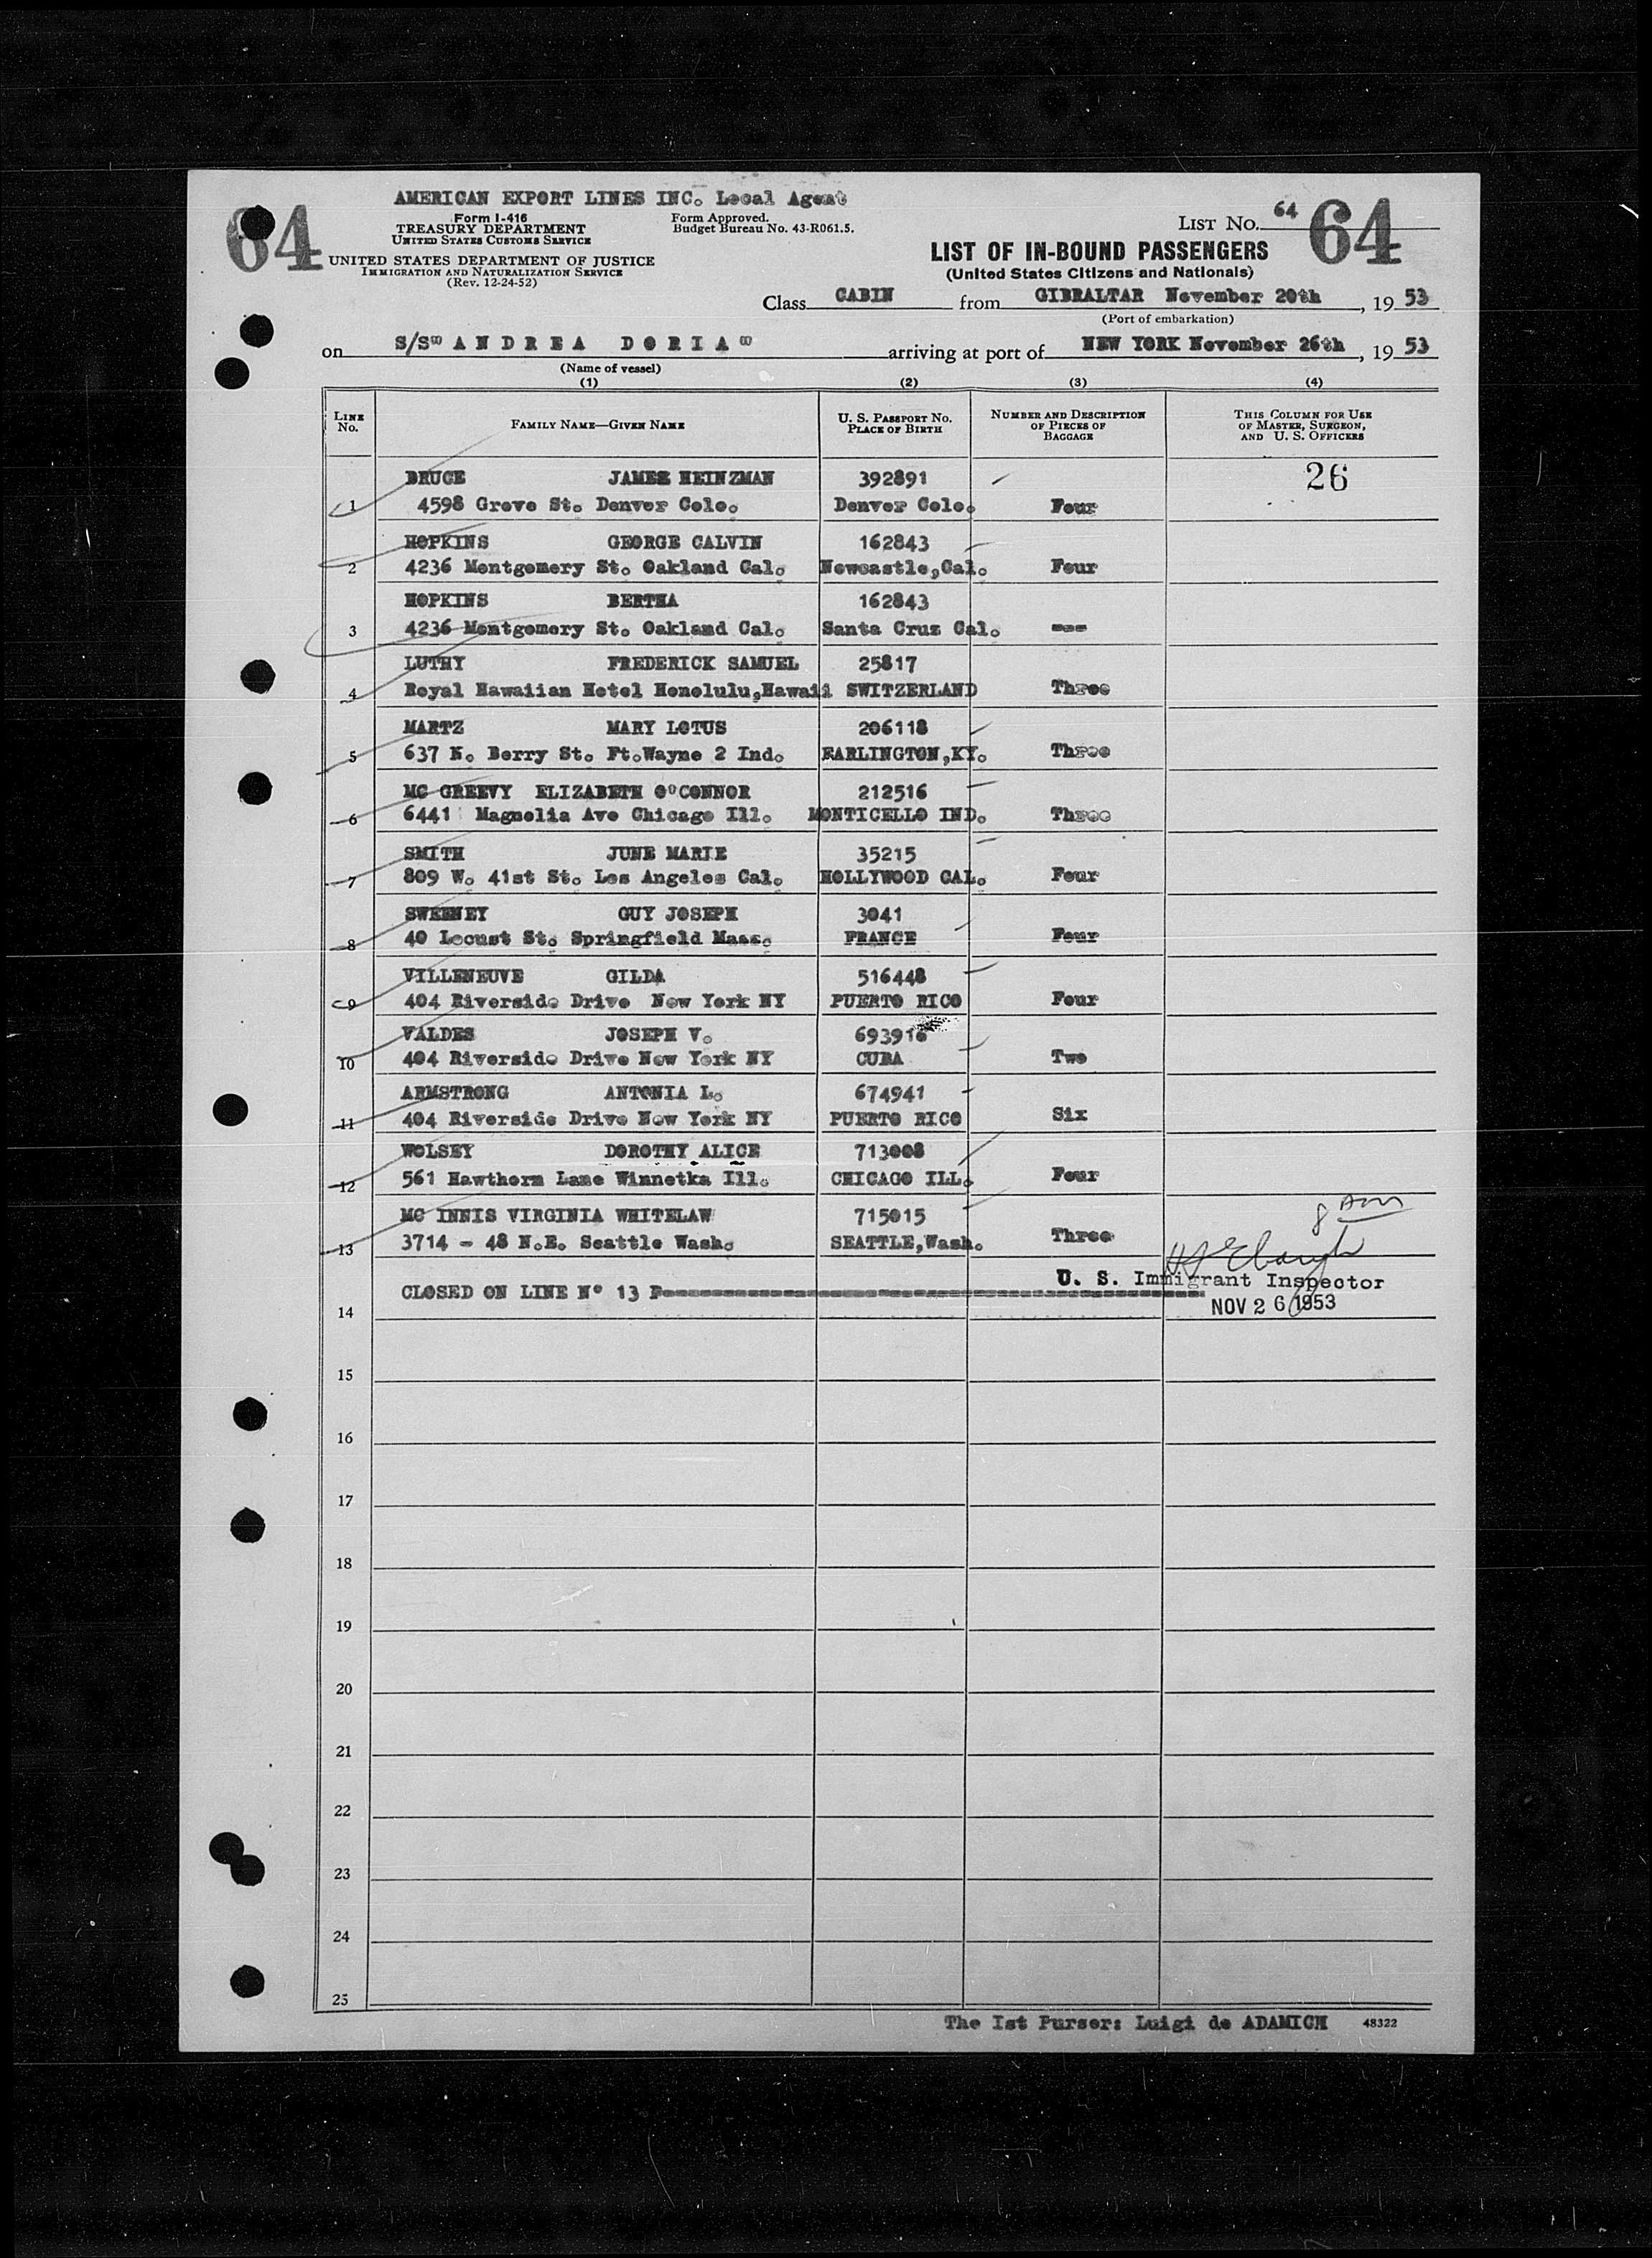 AMERICAN EXPORT LINES INC. Local Agent
64
Form I-416
TREASURY DEPARTMENT
UNITED STATES CUSTOMS SERVICE
UNITED STATES DEPARTMENT OF JUSTICE
IMMIGRATION AND NATURALIZATION SERVICE
(Rev. 12-24-52)
Form Approved.
Budget Bureau No. 43-R061.5.
LIST No. 64
64
LIST OF IN-BOUND PASSENGERS
(United States Citizens and Nationals)
Class CABIN from GIBRALTAR November 20th, 19 53
(Port of embarkation)
on S/S" ANDREA DORIA" arriving at port of NEW YORK November 26th, 19 53
(Name of vessel)
(1) (2) (3) (4)
LINE No. FAMILY NAME—GIVEN NAME U. S. PASSPORT NO. PLACE OF BIRTH NUMBER AND DESCRIPTION OF PIECES OF BAGGAGE THIS COLUMN FOR USE OF MASTER, SURGEON, AND U. S. OFFICERS
BRUCE JAMES HEINZMAN 392891 26
1 4598 Grove St. Denver Colo. Denver Colo. Four
HOPKINS GEORGE CALVIN 162843
2 4236 Montgomery St. Oakland Cal. Newcastle,Cal. Four
HOPKINS BERTHA 162843
3 4236 Montgomery St. Oakland Cal. Santa Cruz Cal. ---
LUTHY FREDERICK SAMUEL 25817
4 Royal Hawaiian Hotel Honolulu,Hawaii SWITZERLAND Three
MARTZ MARY LOTUS 206118
5 637 N. Berry St. Ft.Wayne 2 Ind. EARLINGTON,KY. Three
MC GREEVY ELIZABETH O'CONNOR 212516
6 6441 Magnolia Ave Chicago Ill. MONTICELLO IND. Three
SMITH JUNE MARIE 35215
7 809 W. 41st St. Los Angeles Cal. HOLLYWOOD CAL. Four
SWEENEY GUY JOSEPH 3041
8 40 Locust St. Springfield Mass. FRANCE Four
VILLENEUVE GILDA 516448
9 404 Riverside Drive New York NY PUERTO RICO Four
VALDES JOSEPH V. 693916
10 404 Riverside Drive New York NY CUBA Two
ARMSTRONG ANTONIA L. 674941
11 404 Riverside Drive New York NY PUERTO RICO Six
WOLSEY DOROTHY ALICE 713008
12 561 Hawthorn Lane Winnetka Ill. CHICAGO ILL. Four
MC INNIS VIRGINIA WHITELAW 715015 8 AM
13 3714 - 48 N.E. Seattle Wash. SEATTLE,Wash. Three
U. S. Immigrant Inspector
CLOSED ON LINE N° 13
NOV 26 1953
14
15
16
17
18
19
20
21
22
23
24
25
The Ist Purser: Luigi de ADAMICH 48322